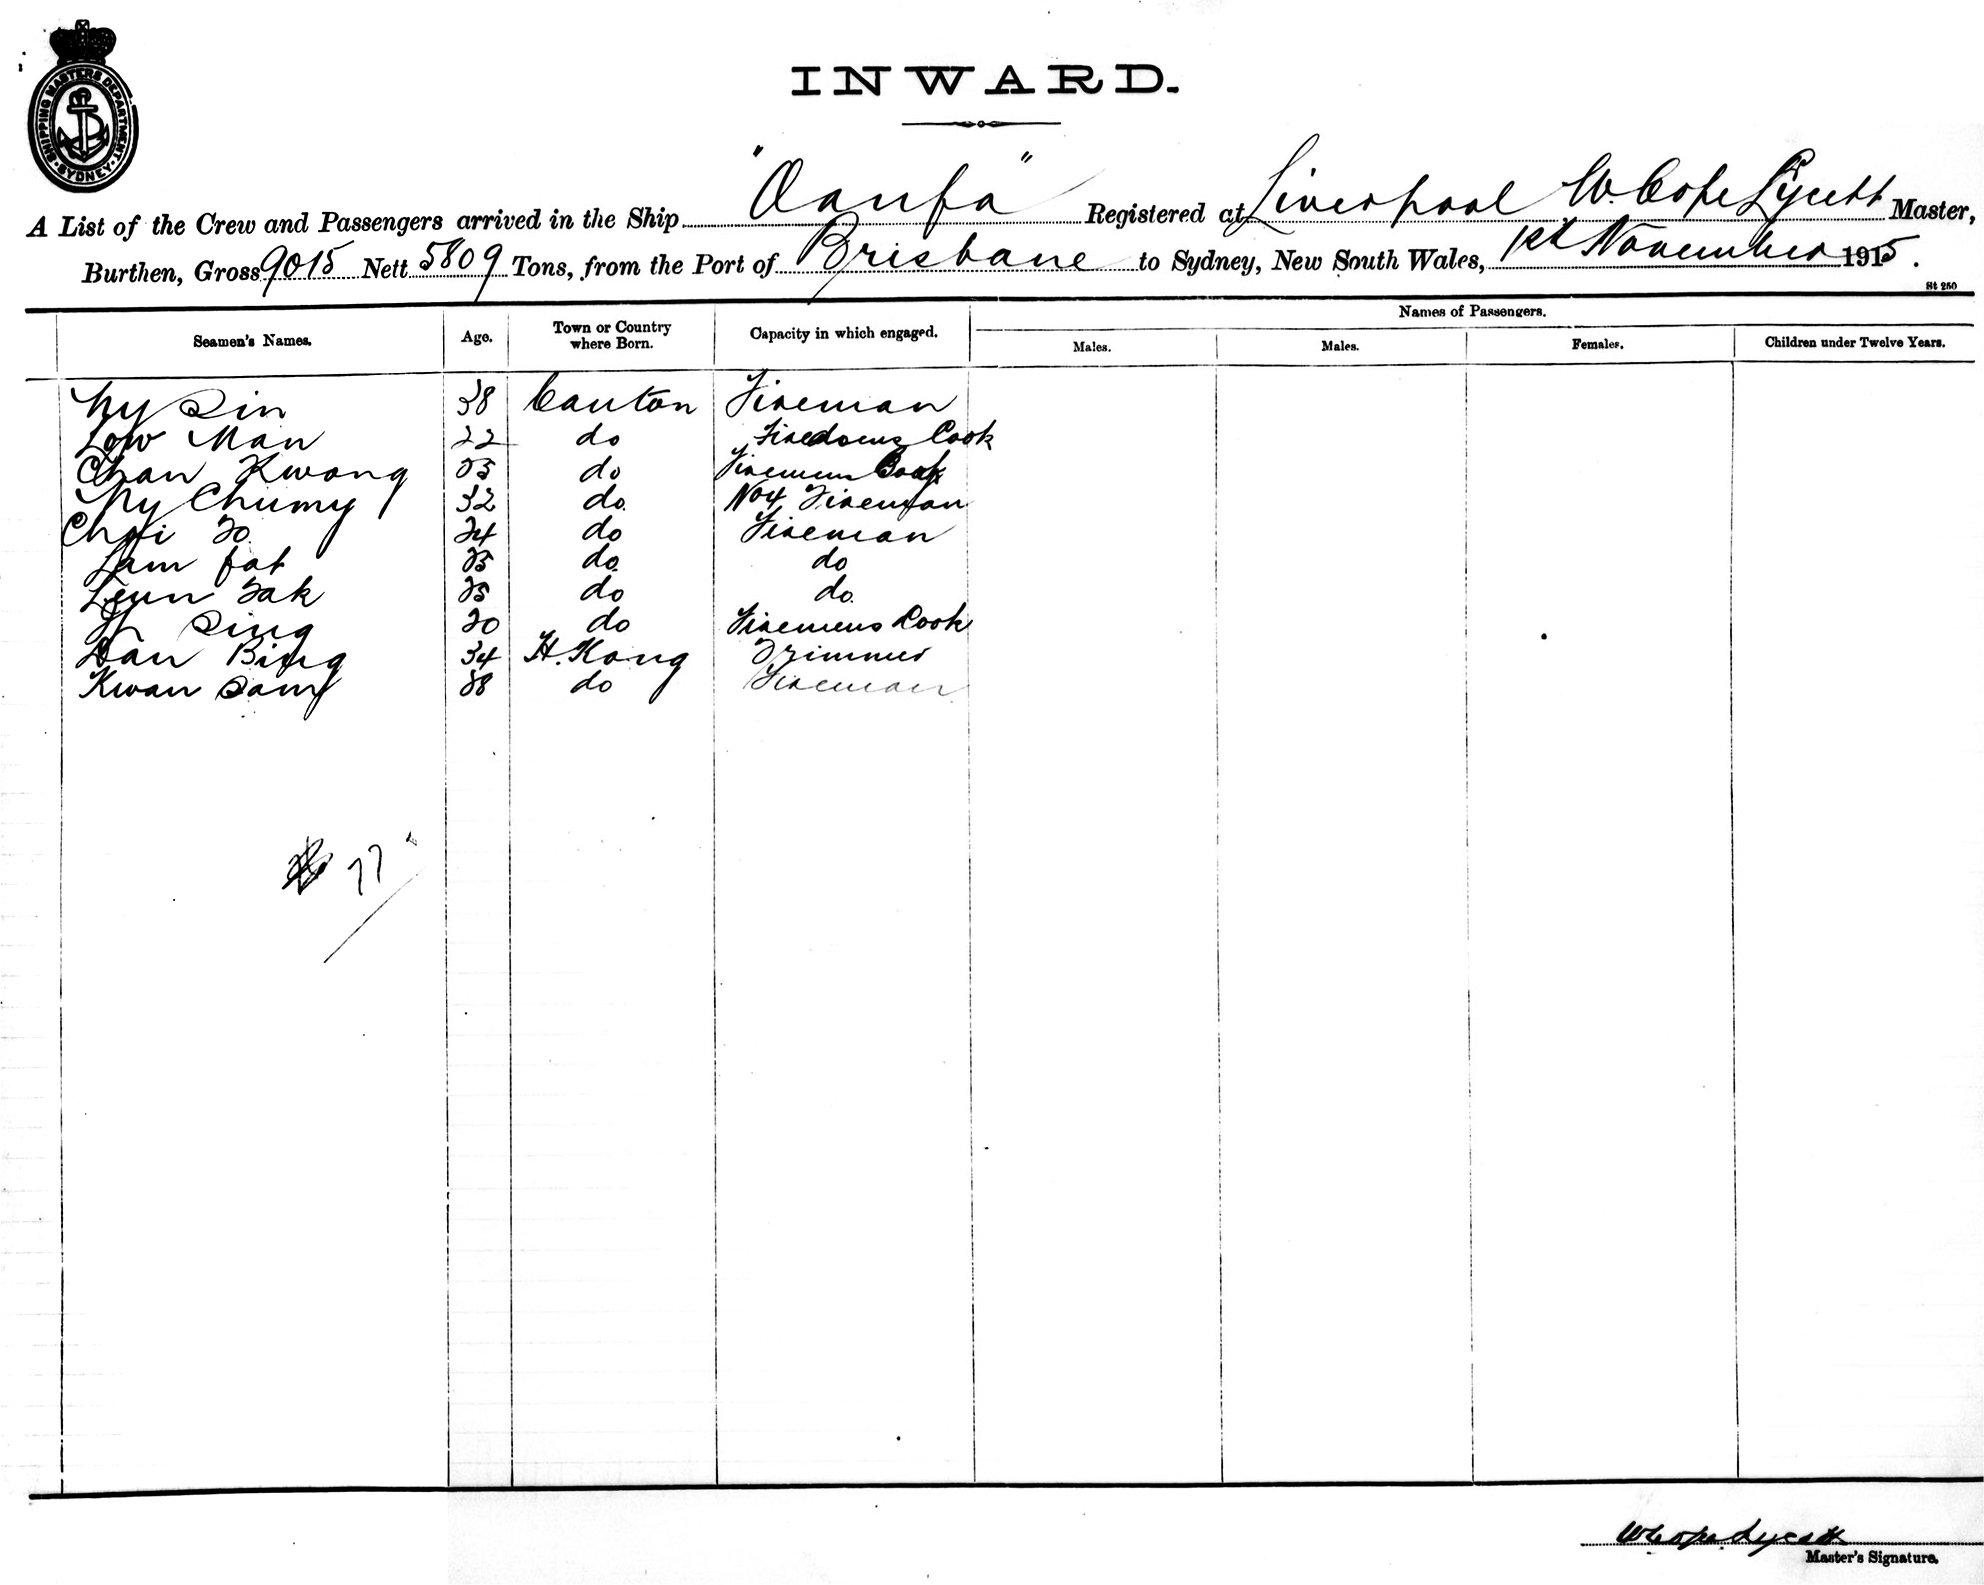 SHIPPING MASTERS DEPARTMENT · SYDNEY ·
INWARD.
A List of the Crew and Passengers arrived in the Ship "Oanfa" Registered at Liverpool W. Cope Lycett Master,
Burthen, Gross 9015 Nett 5809 Tons, from the Port of Brisbane to Sydney, New South Wales, 1st November 1915.
St 250
Names of Passengers.
Seamen's Names. Age. Town or Country where Born. Capacity in which engaged. Males. Males. Females. Children under Twelve Years.
Ny Sin 38 Canton Fireman
Low Man 22 do Cook
Chan Kwong do Firemens Cook
Ny Chumy 32 do No 4 Fireman
Choi To 24 do Fireman
Lam fat do do
Leun Tak do do
Sing do Firemens Cook
Bing 34 H. Kong Trimmer
Kwan Sam 38 do Fireman
77
W Cope Lycett
Master's Signature.